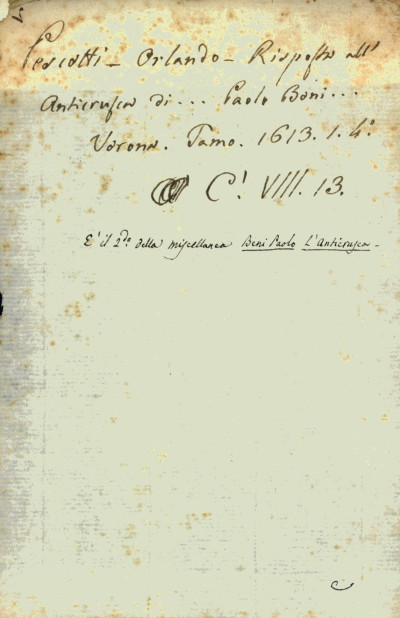 Pescetti - Orlando - Risposta all'
Anticrusca di... Paolo Beni...
Verona. Tamo. 1613. 1. 4.º
C! VIII. 13.
E' il 2.do della miscellanea Beni Paolo L'Anticrusca -